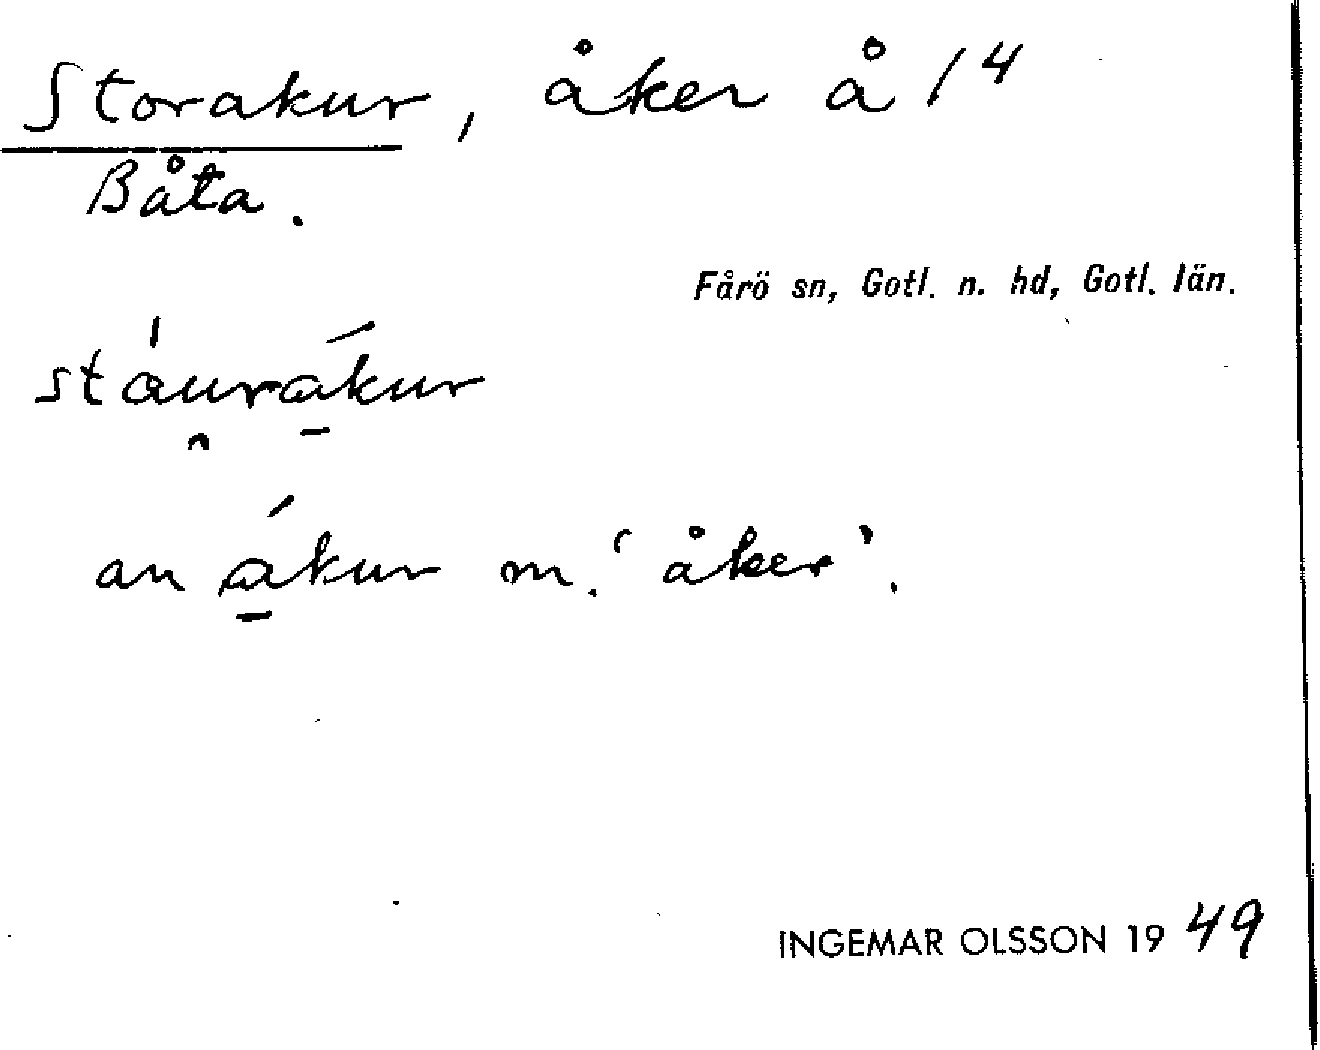 Storakur, åker å 14
Båta.
Fårö sn, Gotl. n. hd, Gotl. län.
stáu̯rá̱kur
an á̱kur m. ‘åker’.
INGEMAR OLSSON 1949